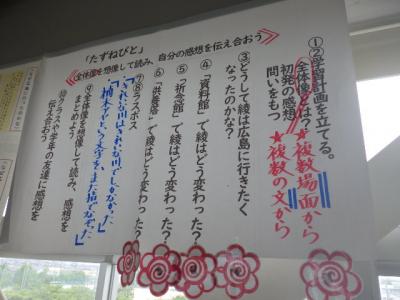 「たずねびと」
全体像を想像して読み、自分の感想を伝え合おう
①②学習計画を立てる。
全体像とは?
★複数場面から
★複数の文から
初発の感想
問いをもつ
③どうして綾は広島に行きたく
なったのかな?
④「資料館」で綾はどう変わった?
⑤「祈念館」で綾はどう変わった?
⑥「供養塔」で綾はどう変わった?
⑦⑧ラスボス
「きれいな川はきれいな川でしかなかった」
「楠木アヤという文字を、また指でなぞった」
⑨全体像を想像して読み、感想を
まとめよう
⑩クラスや学年の友達に感想を
伝え合おう